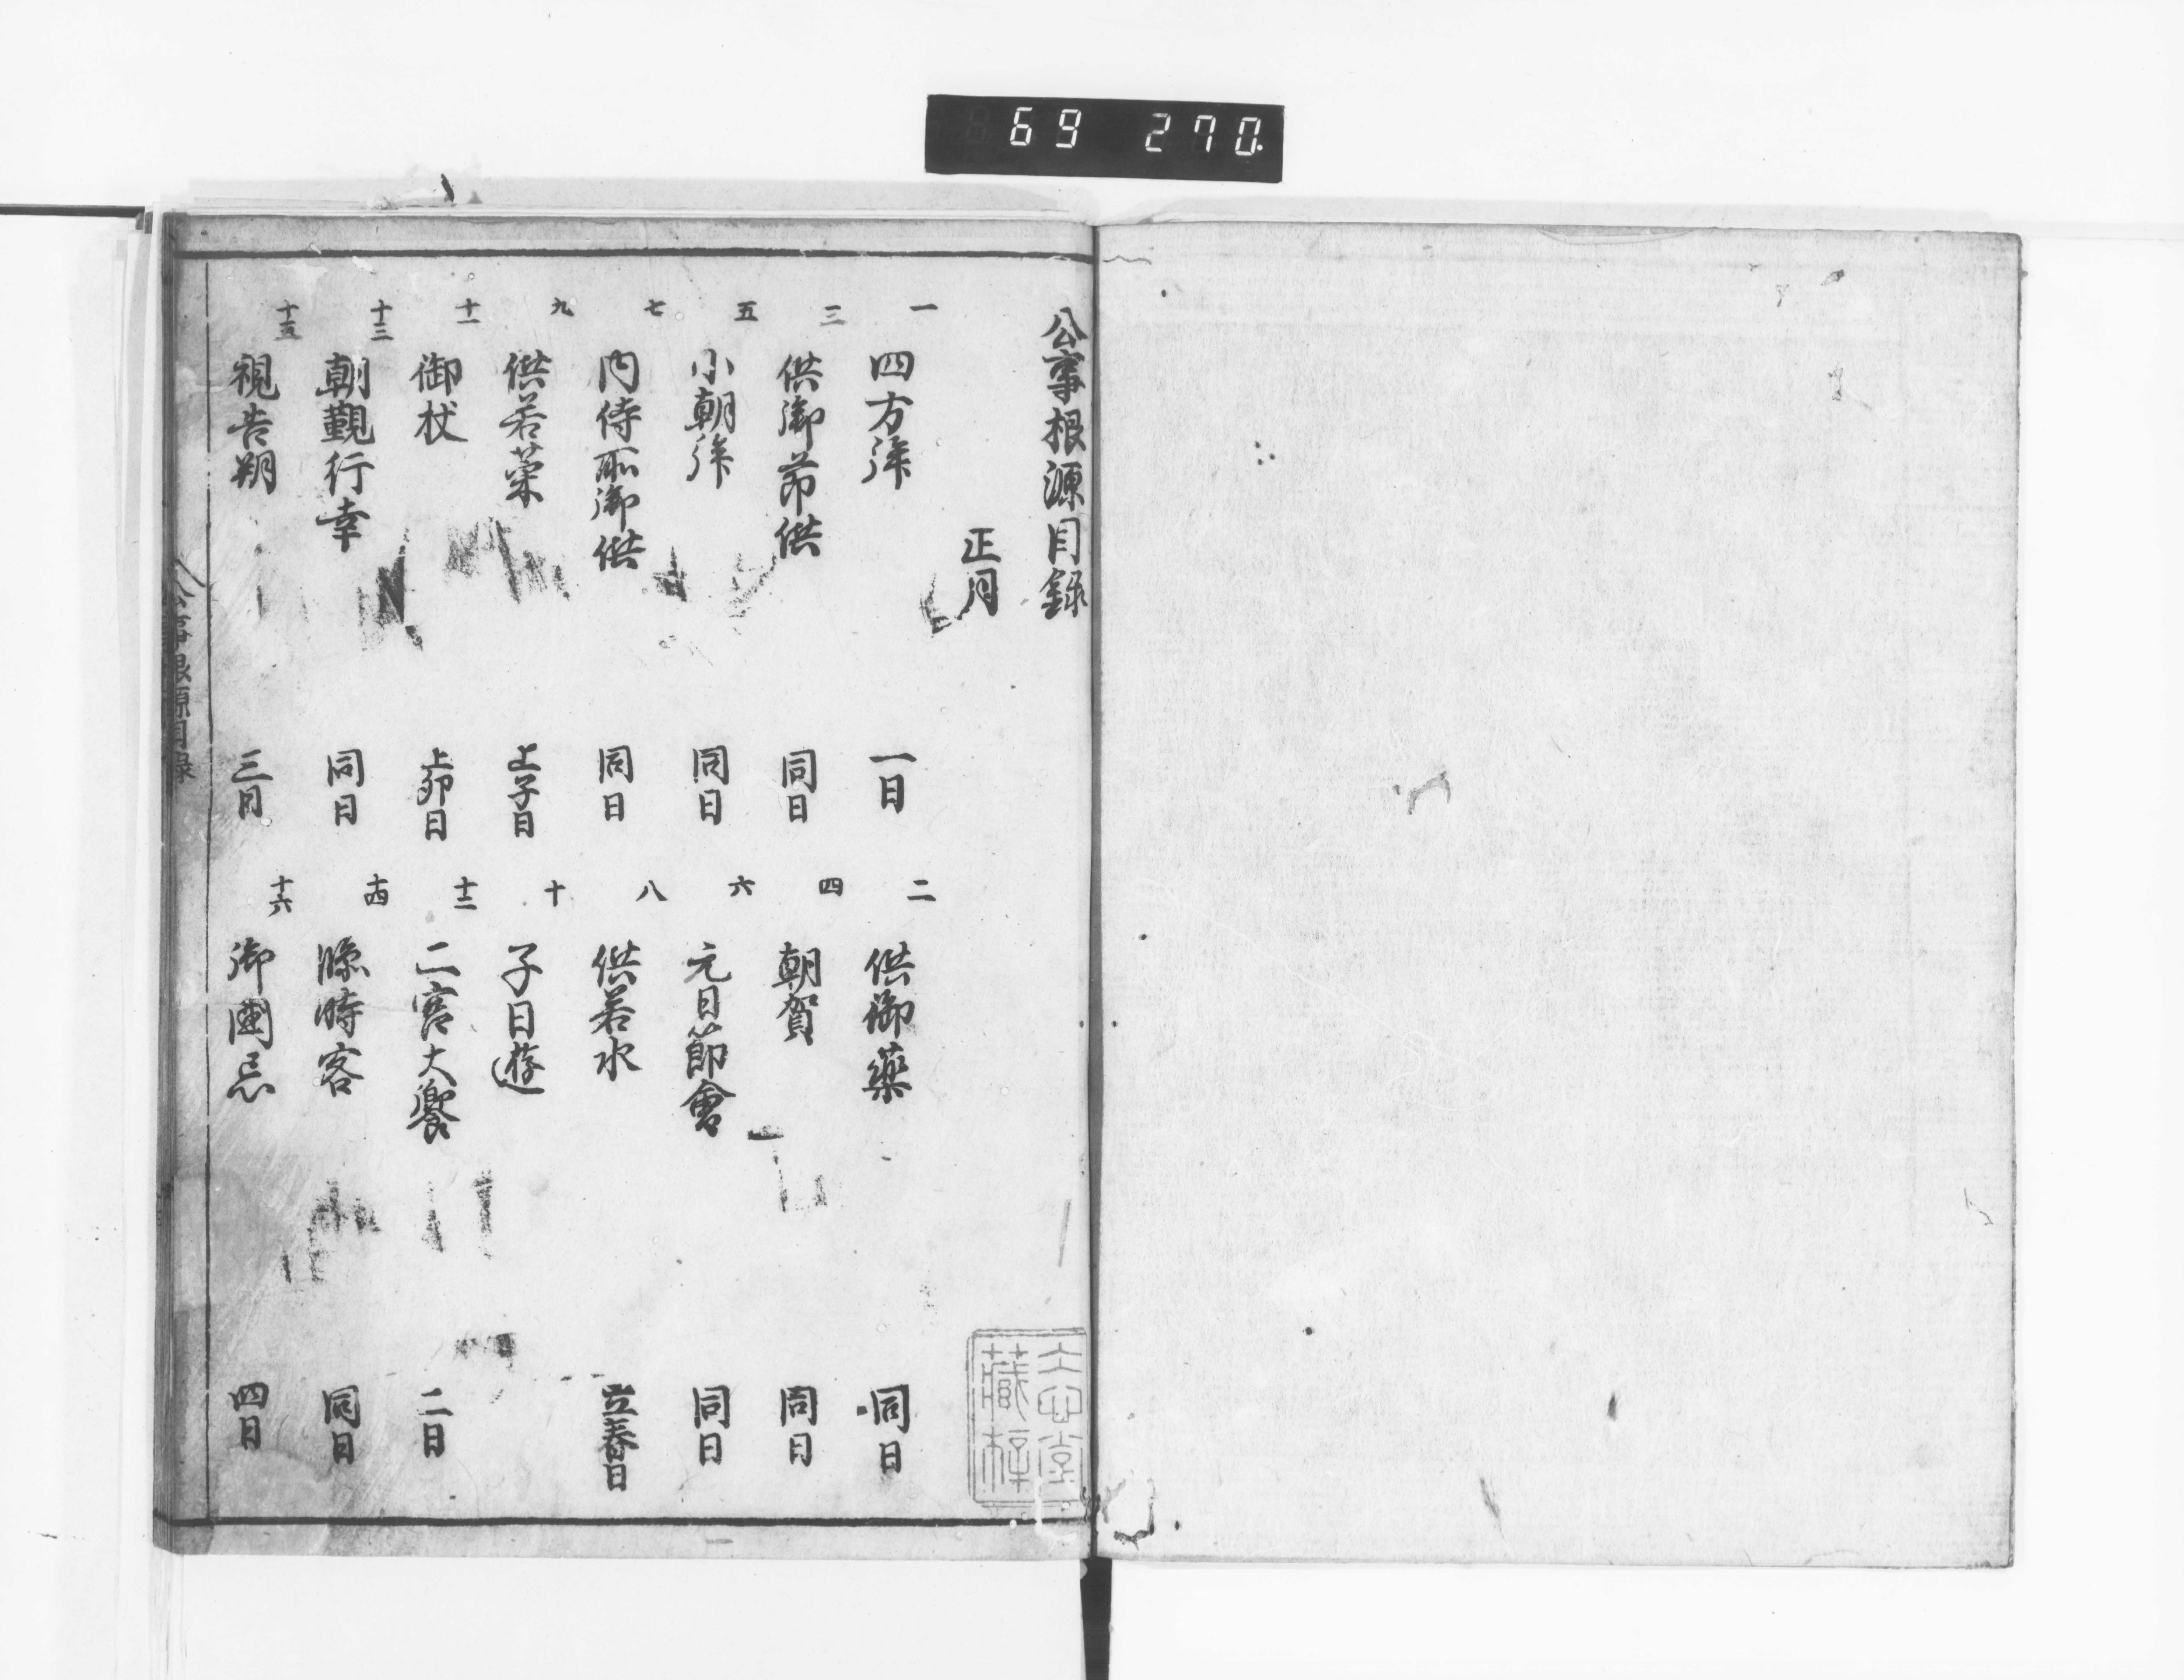 69 270.
公事根源目録
正月
一 四方拜 一日
二 供御藥 同日
三 供御節供 同日
四 朝賀 同日
五 小朝拜 同日
六 元日節會 同日
七 内侍所御供 同日
八 供若水 立春日
九 供若菜 上子日
十 子日遊
十一 御杖 上卯日
十二 二宮大饗 二日
十三 朝覲行幸 同日
十四 臨時客 同日
十五 視告朔 三日
十六 御國忌 四日
公事根源目録
藏梓